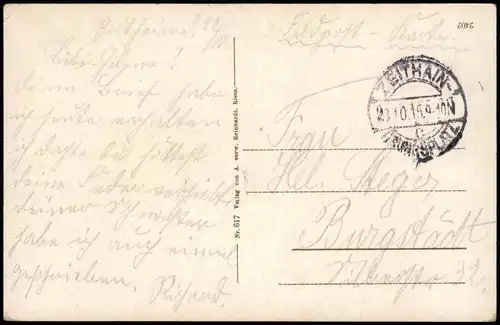 Zeithain d. 22/10
Liebe Helene!
Deinen Brief habe
ich heute erhalten
ich dachte du hättest
deine
deiner Schwester
habe ich auch einmal
geschrieben. Richard.
Nr. 617 Verlag von A. verw. Reinhardt, Riesa.
Feldpost-Karte
2402
ZEITHAIN
23.10.15.9-10V
c
ÜBUNGSPLATZ
Frau
Hel. Steger
Burgstädt
32.